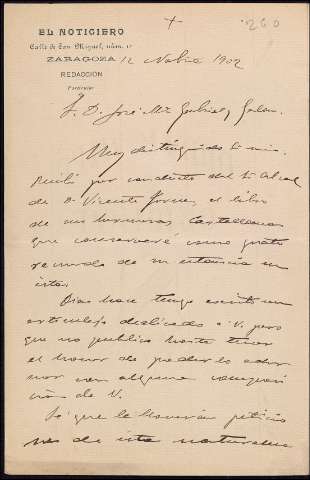 + 260
EL NOTICIERO
Calle de San Miguel, núm. 12
ZARAGOZA 12 Novbre 1902
REDACCION
Particular
S. D. José Mª Gabriel y Galan.
Muy distinguido Sr. mio.
Recibí por conducto del Sr.
de D. Vicente el libro
de sus hermosas Castellanas
que conservaré como grato
recuerdo de su estancia en
esta.
Dias hace tengo escrito un
articulejo dedicado a V. pero
que no publico hasta tener
el honor de poderlo ador
nar con alguna composi
ción de V.
Sé que le lloverán peticio
nes de esta naturaleza